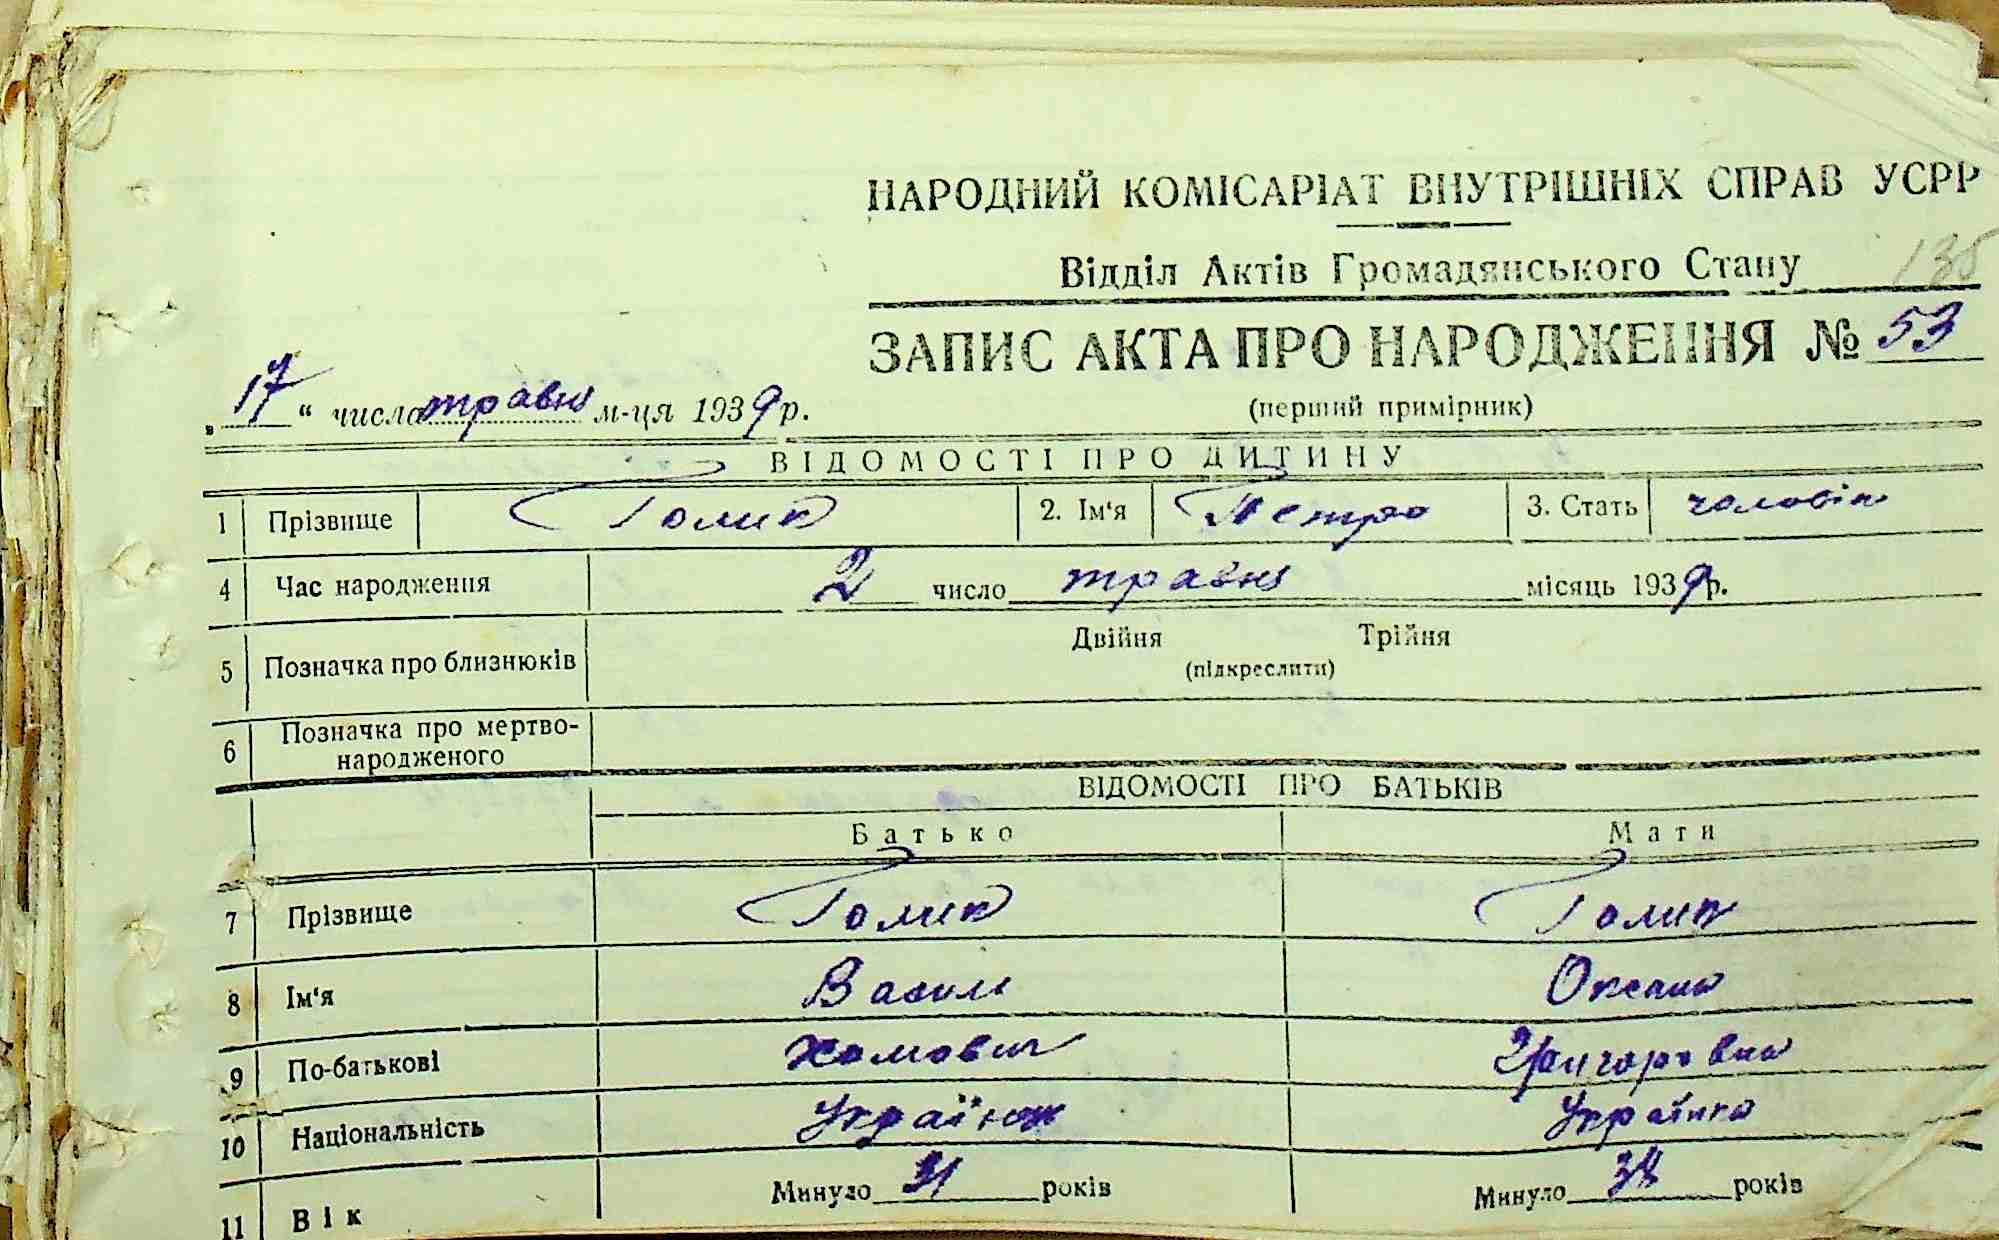 НАРОДНИЙ КОМІСАРІАТ ВНУТРІШНІХ СПРАВ УСРР
Відділ Актів Громадянського Стану
ЗАПИС АКТА ПРО НАРОДЖЕННЯ № 53
„17“ числа травня м-ця 1939 р.
(перший примірник)
ВІДОМОСТІ ПРО ДИТИНУ
1 Прізвище Голик 2. Ім‘я Петро 3. Стать чоловік
4 Час народження 2 число травня місяць 1939 р.
5 Позначка про близнюків Двійня Трійня
(підкреслити)
6 Позначка про мертво-
народженого
ВІДОМОСТІ ПРО БАТЬКІВ
Батько Мати
7 Прізвище Голик Голик
8 Ім‘я Васил Оксана
9 По-батькові Хомович Григоровна
10 Національність Українец Українка
11 Вік Минуло років Минуло років